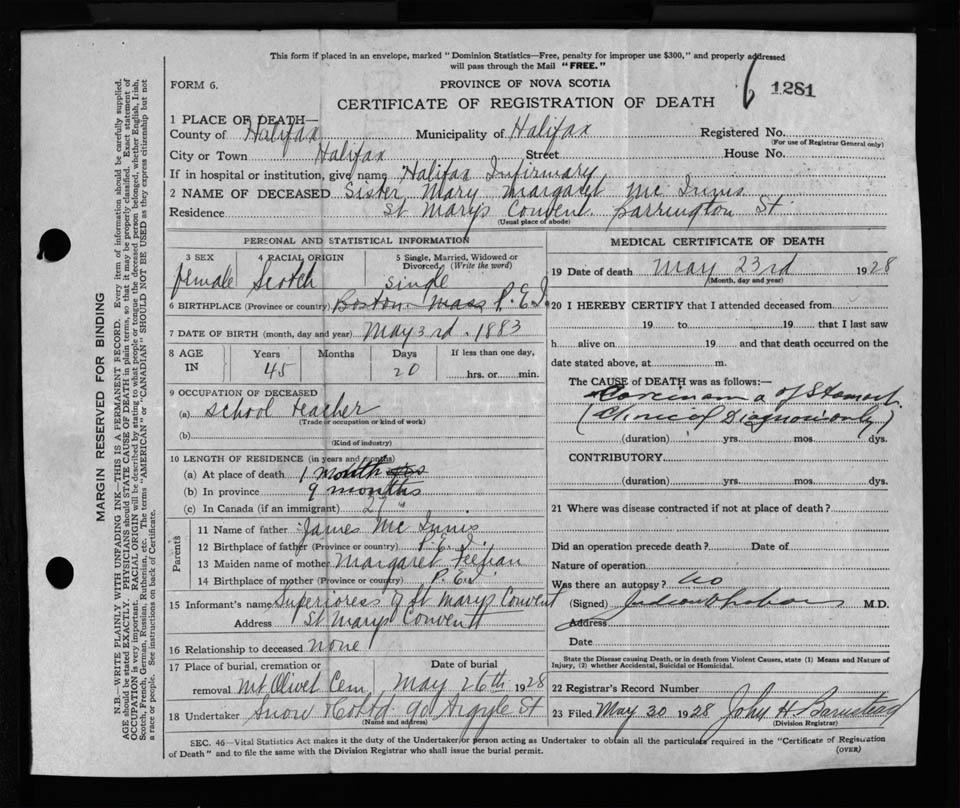 This form if placed in an envelope, marked "Dominion Statistics—Free, penalty for improper use $300," and properly addressed
will pass through the Mail "FREE."
FORM 6.
PROVINCE OF NOVA SCOTIA
6 1281
CERTIFICATE OF REGISTRATION OF DEATH
1 PLACE OF DEATH—
County of Halifax Municipality of Halifax Registered No.
(For use of Registrar General only)
City or Town Halifax Street House No.
If in hospital or institution, give name Halifax Infirmary
2 NAME OF DECEASED Sister Mary Margaret Mc Innis
Residence St Marys Convent Barrington St
(Usual place of abode)
PERSONAL AND STATISTICAL INFORMATION
3 SEX 4 RACIAL ORIGIN 5 Single, Married, Widowed or
Divorced, (Write the word)
female Scotch single
6 BIRTHPLACE (Province or country) Boston Mass P.E.I
7 DATE OF BIRTH (month, day and year) May 3rd. 1883
8 AGE IN Years Months Days If less than one day,
45 20 hrs. or min.
9 OCCUPATION OF DECEASED
(a) School teacher
(Trade or occupation or kind of work)
(b)
(Kind of industry)
10 LENGTH OF RESIDENCE (in years and months)
(a) At place of death 1 month
(b) In province 9 months
(c) In Canada (if an immigrant) 27 "
Parents
11 Name of father James Mc Innis
12 Birthplace of father (Province or country) P.E.I.
13 Maiden name of mother Margaret Feehan
14 Birthplace of mother (Province or country) P.E.I.
15 Informant's name Superioress of St Marys Convent
Address St Marys Convent
16 Relationship to deceased none
17 Place of burial, cremation or Date of burial
removal Mt Olivet Cem May 26th 1928
18 Undertaker Snow & Co Ltd 90 Argyle St
(Name and address)
MEDICAL CERTIFICATE OF DEATH
19 Date of death May 23rd 1928
(Month, day and year)
20 I HEREBY CERTIFY that I attended deceased from
19 to 19 that I last saw
h alive on 19 and that death occurred on the
date stated above, at m.
The CAUSE of DEATH was as follows:—
Carcinoma of Stomach
(Clinical Diagnosis only)
(duration) yrs. mos. dys.
CONTRIBUTORY
(duration) yrs. mos. dys.
21 Where was disease contracted if not at place of death?
Did an operation precede death? Date of
Nature of operation
Was there an autopsy? No
(Signed) M.D.
Address
Date
State the Disease causing Death, or in death from Violent Causes, state (1) Means and Nature of
Injury, (2) whether Accidental, Suicidal or Homicidal.
22 Registrar's Record Number
23 Filed May 30 1928 John H Barnstead
(Division Registrar)
SEC. 46—Vital Statistics Act makes it the duty of the Undertaker or person acting as Undertaker to obtain all the particulars required in the "Certificate of Registration
of Death" and to file the same with the Division Registrar who shall issue the burial permit.
(OVER)
MARGIN RESERVED FOR BINDING
N.B.—WRITE PLAINLY WITH UNFADING INK—THIS IS A PERMANENT RECORD. Every item of information should be carefully supplied.
AGE should be stated EXACTLY. PHYSICIANS should STATE CAUSE OF DEATH in plain terms, so that it may be properly classified. Exact statement of
OCCUPATION is very important. RACIAL ORIGIN will be described by stating to what people or tongue the deceased person belonged, whether English, Irish,
Scotch, French, German, Russian, Ruthenian, etc. The terms "AMERICAN" or "CANADIAN" SHOULD NOT BE USED as they express citizenship but not
a race or people. See instructions on back of Certificate.